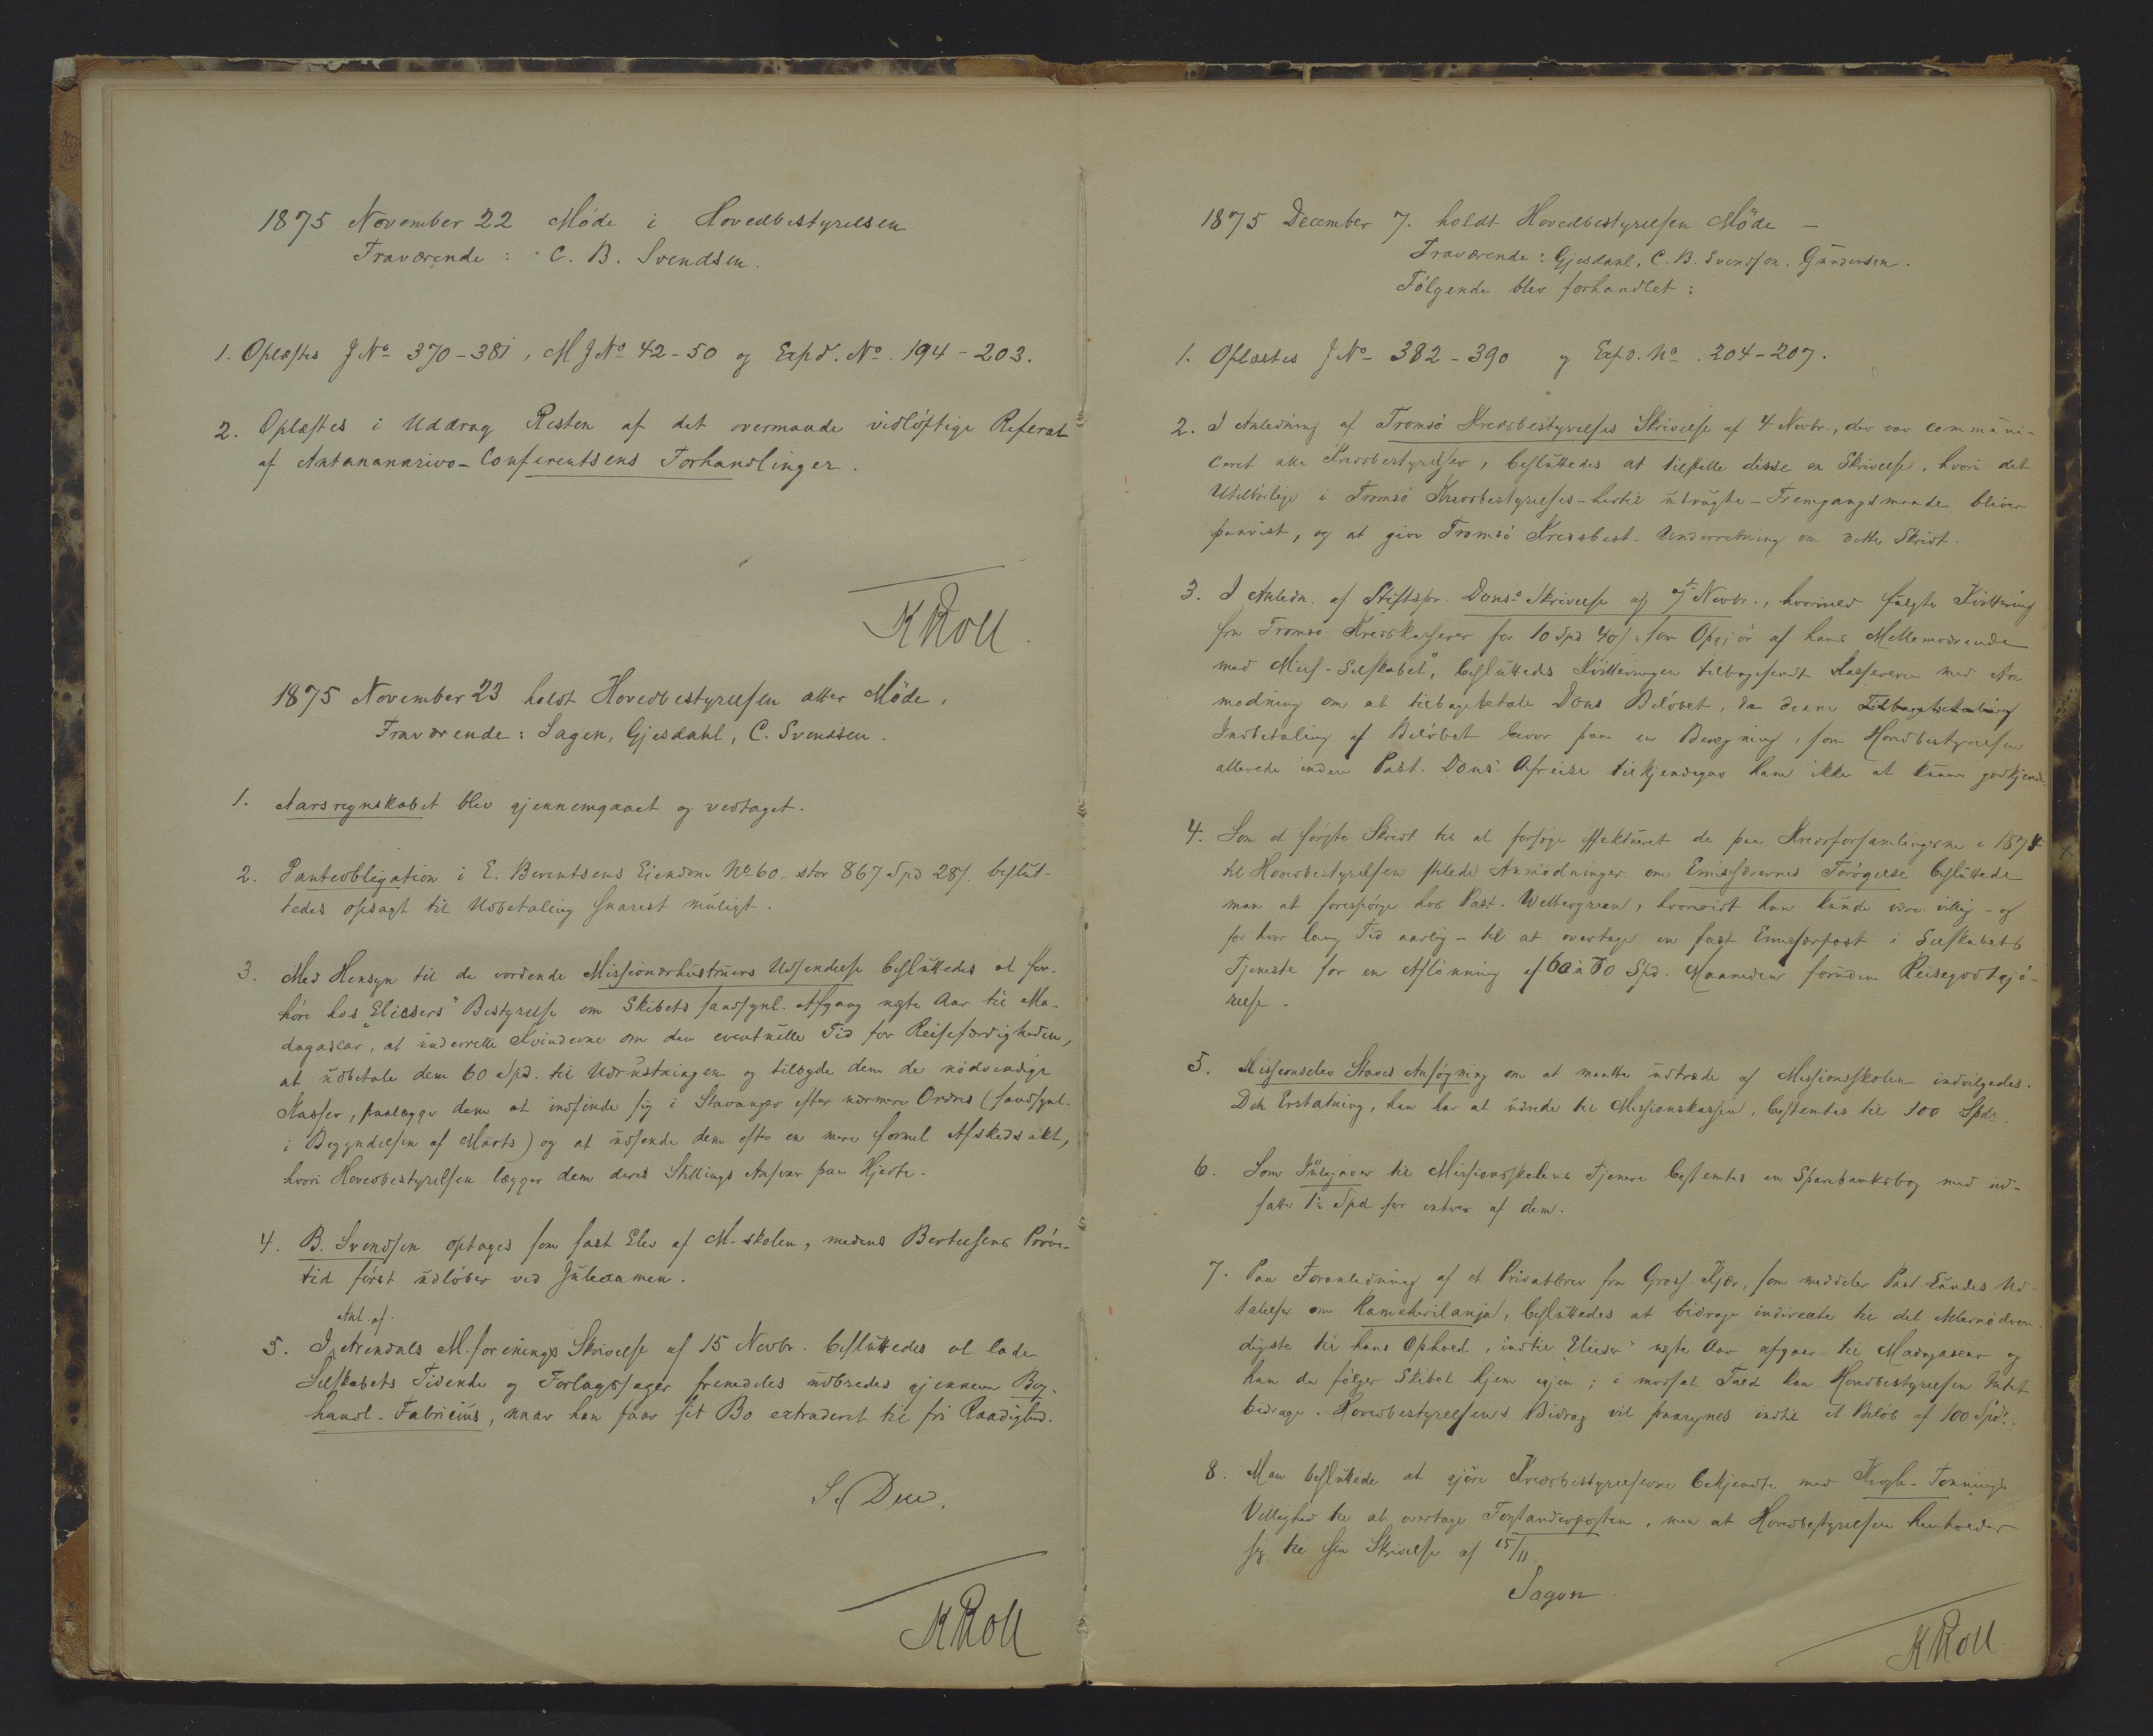 1875 November 22 Møde i Hovedbestyrelsen
Fraværende: C. B. Svendsen.
1. Oplæstes J No 370-381, M J No 42-50 og Expd. No. 194-203.
2. Oplæstes i Uddrag Resten af det overmaade vidløftige Referat
af Antananarivo-Conferentsens Forhandlinger.
K Roll
1875 November 23 holdt Hovedbestyrelsen atter Møde,
Fraværende: Sagen, Gjesdahl, C. Svendsen.
1. Aarsregnskabet blev gjennemgaaet og vedtaget.
2. Panteobligation i E. Berentsens Eiendom No 60. stor 867 Spd 28 s. beslut-
tedes opsagt til Udbetaling snarest muligt.
3. Med Hensyn til de vordende Missionærhustruers Udsendelse besluttedes at for-
høre hos "Eliesers" Bestyrelse om Skibets sandsynl. Afgang næste Aar til Ma-
dagascar, at underrette Kvinderne om den eventuelle Tid for Reisefærdigheden,
at udbetale dem 60 Spd. til Udrustningen og tilbyde dem de nødvendige
Kasser, paalægge dem at indfinde sig i Stavanger efter nærmere Ordres (sandsynl.
i Begyndelsen af Marts) og at udsende dem efter en mere formel Afskedsakt,
hvori Hovedbestyrelsen lægger dem deres Stillings Ansvar paa Hjerte.
4. B. Svendsen optages som fast Elev af M-skolen, medens Bertelsens Prøve-
tid først udløber ved Juleexamen.
Anl. af
5. I Arendals M.forenings Skrivelse af 15 Novbr. besluttedes at lade
Selskabets Tidende og Forlagssager fremdeles udbredes gjennem Bog-
handl. Fabricius, naar han faar sit Bo extraderet til fri Raadighed.
S. Due.
K Roll
1875 December 7. holdt Hovedbestyrelsen Møde –
Fraværende: Gjesdahl, C. B. Svendsen. Gundersen.
Følgende blev forhandlet:
1. Oplæstes J No 382-390 og Expd. No. 204-207.
2. I Anledning af Tromsø Kredsbestyrelses Skrivelse af 4 Novbr., der var communi-
ceret alle Kredsbestyrelser, besluttedes at tilstille disse en Skrivelse, hvori det
Utilbørlige i Tromsø Kredsbestyrelses – hertil udbrugte – Fremgangsmaade bliver
paavist, og at give Tromsø Kredsbest. Underretning om dette Skridt.
3. I Anledn. af Stiftspr. Dons's Skrivelse af Novbr., hvormed fulgte Kvittering
fra Tromsø Kredskasserer for 10 Spd 40 s. "som Opgjør af hans Mellemværende
med Miss-Selskabet", besluttedes Kvitteringen tilbagesendt Kassereren med An-
modning om at tilbagebetale Dons Beløbet, da denne Tilbagebetaling
Indbetaling af Beløbet beror paa en Beregning, som Hovedbestyrelsen
allerede inden Past. Dons' Afreise tilkjendegav ham ikke at kunne godkjende.
4. Som et første Skridt til at forsøge effektueret de paa Kredsforsamlingerne i 1874
til Hovedbestyrelsen stilede Anmodninger om Emissærernes Forøgelse besluttede
man at forespørge hos Past. Wettergreen, hvorvidt han kunde være villig – og
for hvor lang Tid aarlig – til at overtage en fast Emissærpost i Selskabets
Tjeneste for en Aflønning af 60 à 70 Spd. Maaneden foruden Reisegodtgjø-
relse.
5. Missionselev Staves Ansøgning om at maatte udtræde af Missionsskolen indvilgedes.
Den Erstatning, han har at udrede til Missionskassen, bestemtes til 100 Spd.
6. Som Julegaver til Missionsskolens Tjenere bestemtes en Sparebanksbog med ind-
satte 1 Spd for enhver af dem.
7. Paa Foranledning af et Privatbrev fra Gross. Kjær, som meddeler Past. Lundes Ud-
talelser om Rameherilanja, besluttedes at bidrage indirecte til det Allernødven-
digste til hans Ophold, indtil "Elieser" næste Aar afgaar til Madagascar og
han da følger Skibet hjem igjen; i modsat Fald kan Hovedbestyrelsen Intet
bidrage. Hovedbestyrelsens Bidrag vil paaregnes indtil et Beløb af 100 Spd.
8. Man besluttede at gjøre Kredsbestyrelserne bekjendte med Krogh-Tonnings
Villighed til at overtage Forstanderposten, men at Hovedbestyrelsen henholder
sig til sin Skrivelse af 15/11.
Sagen
K Roll